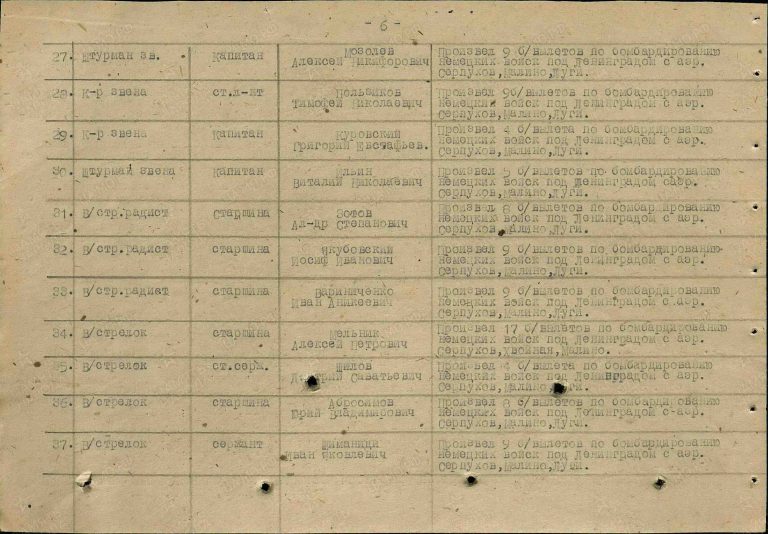 - 6 -
27. Штурман зв. Капитан Мозолев Произвел 9 б/вылетов по бомбардированию
Алексей Никифорович немецких войск под Ленинградом с аэр.
Серпухов,Малино,Луги.
28. К-р звена ст.л-нт Польшиков Произвел 9б/вылетов по бомбардированию
Тимофей Николаевич немецких войск под Ленинградом с аэр.
Серпухов,Малино,Луги.
29. К-р звена Капитан Куровский Произвел 4 б/вылета по бомбардированию
Григорий Евстафьев. немецких войск под Ленинградом с аэр.
Серпухов,Малино,Луги.
30. Штурман звена Капитан Ильин Произвел 5 б/вылетов по бомбардированию
Виталий Николаевич немецких войск под Ленинградом с аэр.
Серпухов,Малино,Луги.
31. В/стр.радист Старшина Зотов Произвел 8 б/вылетов по бомбардированию
Ал-др Степанович немецких войск под Ленинградом с аэр.
Серпухов,Малино,Луги.
32. В/стр.радист старшина Якубовский Произвел 9 б/вылетов по бомбардированию
Иосиф Иванович немецких войск под Ленинградом с аэр.
Серпухов,Малино,Луги.
33. В/стр.радист старшина Вариниченко Произвел 9 б/вылетов по бомбардированию
Иван Аникеевич немецких войск под Ленинградом с аэр.
Серпухов,Малино,Луги.
34. В/стрелок старшина Мельник Произвел 17 б/вылетов по бомбардированию
Алексей Петрович немецких войск под Ленинградом с аэр.
Серпухов,Хвойная,Малино.
35. В/стрелок ст.серж. Шилов Произвел 4 б/вылета по бомбардированию
Дмитрий Саватьевич немецких войск под Ленинградом с аэр.
Серпухов,Малино,
36. В/стрелок старшина Абросимов Произвел 8 б/вылетов по бомбардированию
Юрий Владимирович немецких войск под Ленинградом с-аэр.
Серпухов,Малино,Луги.
37. В/стрелок сержант Шиманиди Произвел 9 б/вылетов по бомбардированию
Иван Яковлевич немецких войск под Ленинградом с аэр.
Серпухов,Малино,Луги.